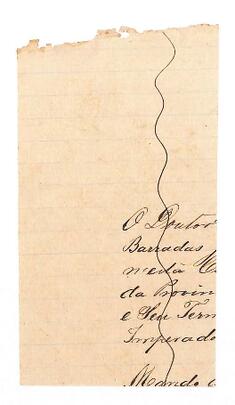 O Doutor
Barradas
nesta C
da Provin
e Seu Term
Imperado
Mando